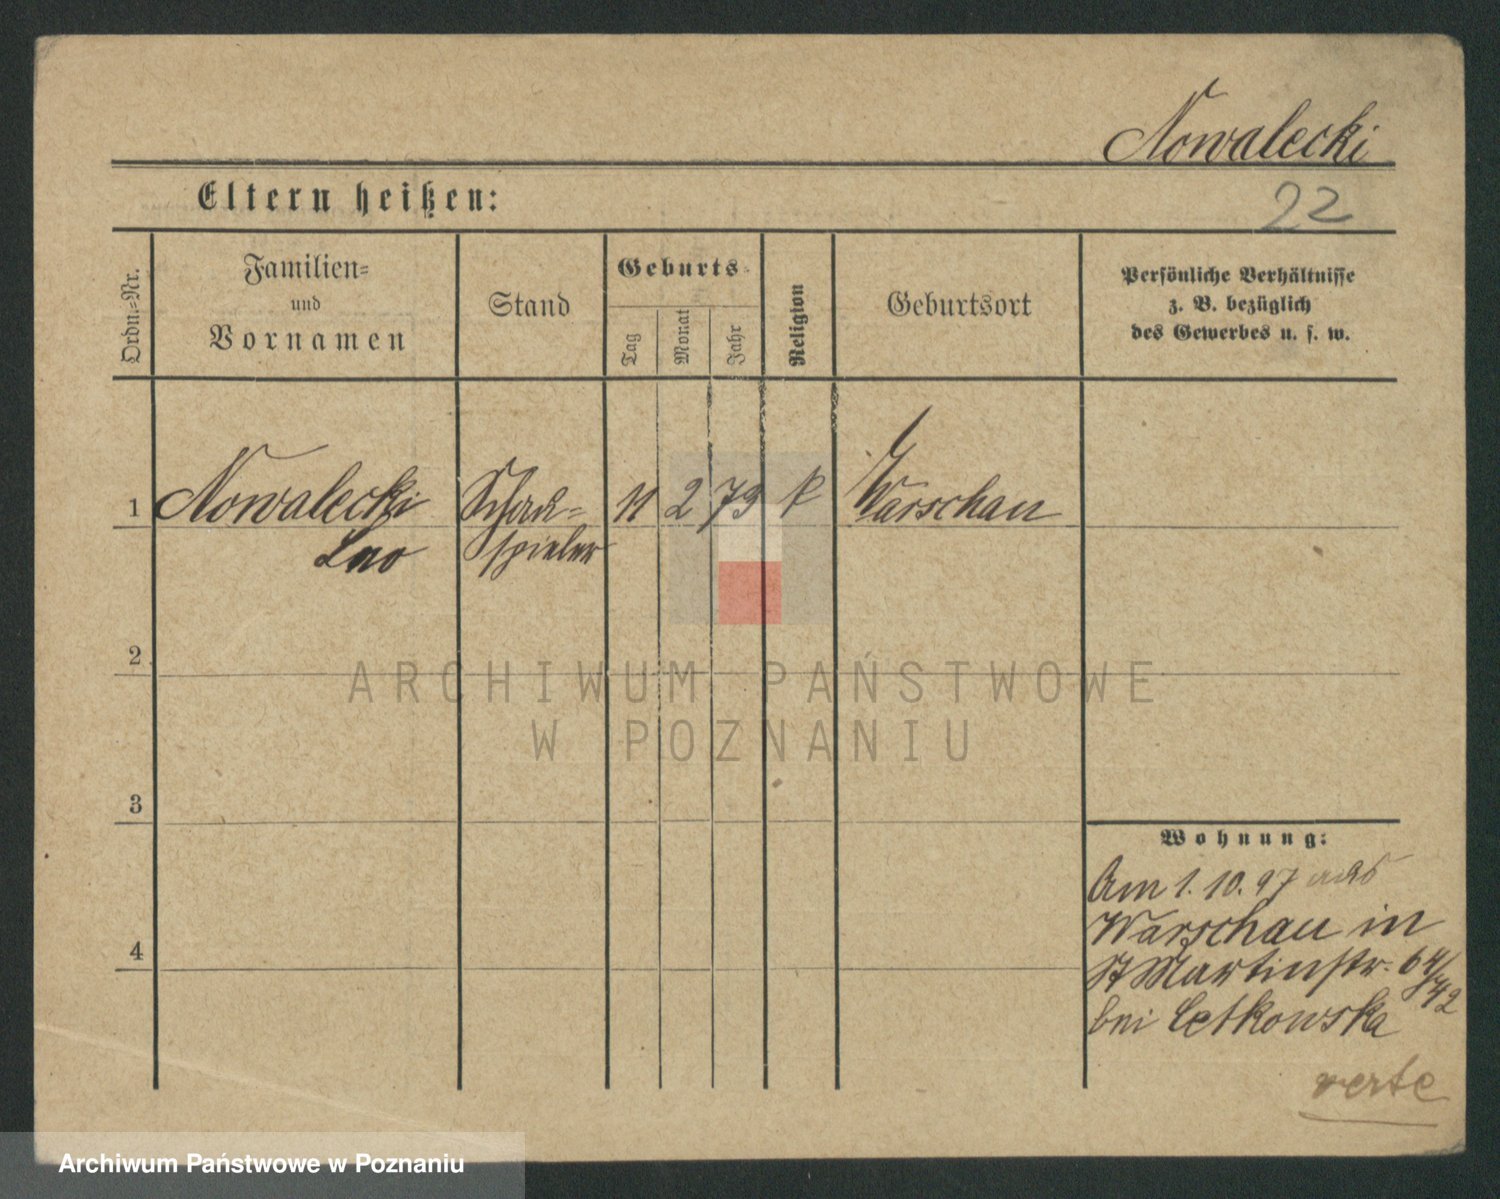 Nowalecki
Eltern heißen:
22
Ordn.-Nr.
Familien-
und
Vornamen
Stand
Geburts-
Tag
Monat
Jahr
Religion
Geburtsort
Persönliche Verhältnisse
z. B. bezüglich
des Gewerbes u. s. w.
1 Nowalecki Schau- 11 2 73 k Warschau
Leo spieler
2
ARCHIWUM PAŃSTWOWE
W POZNANIU
3
Wohnung:
Am 1. 10. 97 aus
Warschau in
4
St Martinstr. 64/42
bei Letkowska
verte
Archiwum Państwowe w Poznaniu